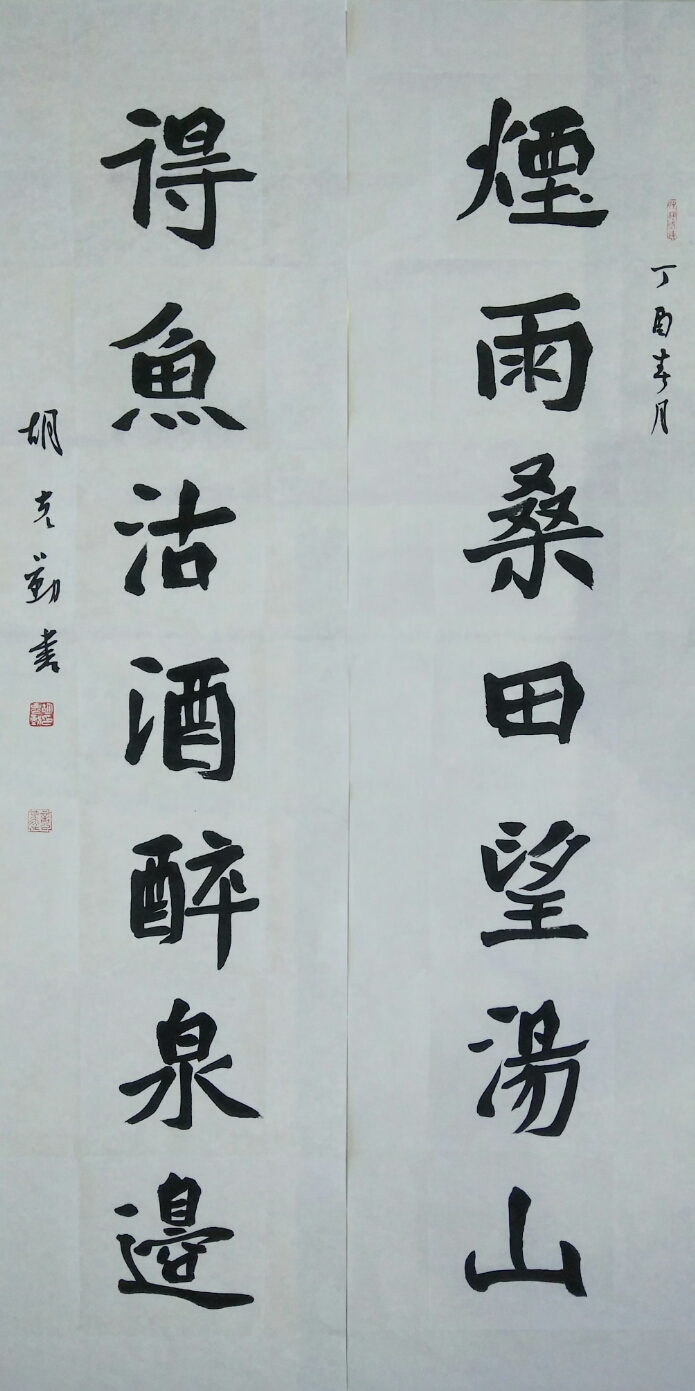 丁酉春月
煙雨桑田望湯山
得魚沽酒醉泉邊
胡克勤書